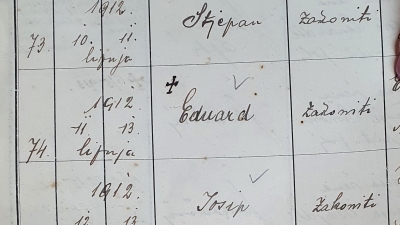 1912. Stjepan zakoniti
73. 10. 11.
lipnja
1912. Eduard zakoniti
11. 13.
74. lipnja
1912. Josip zakoniti
12 13